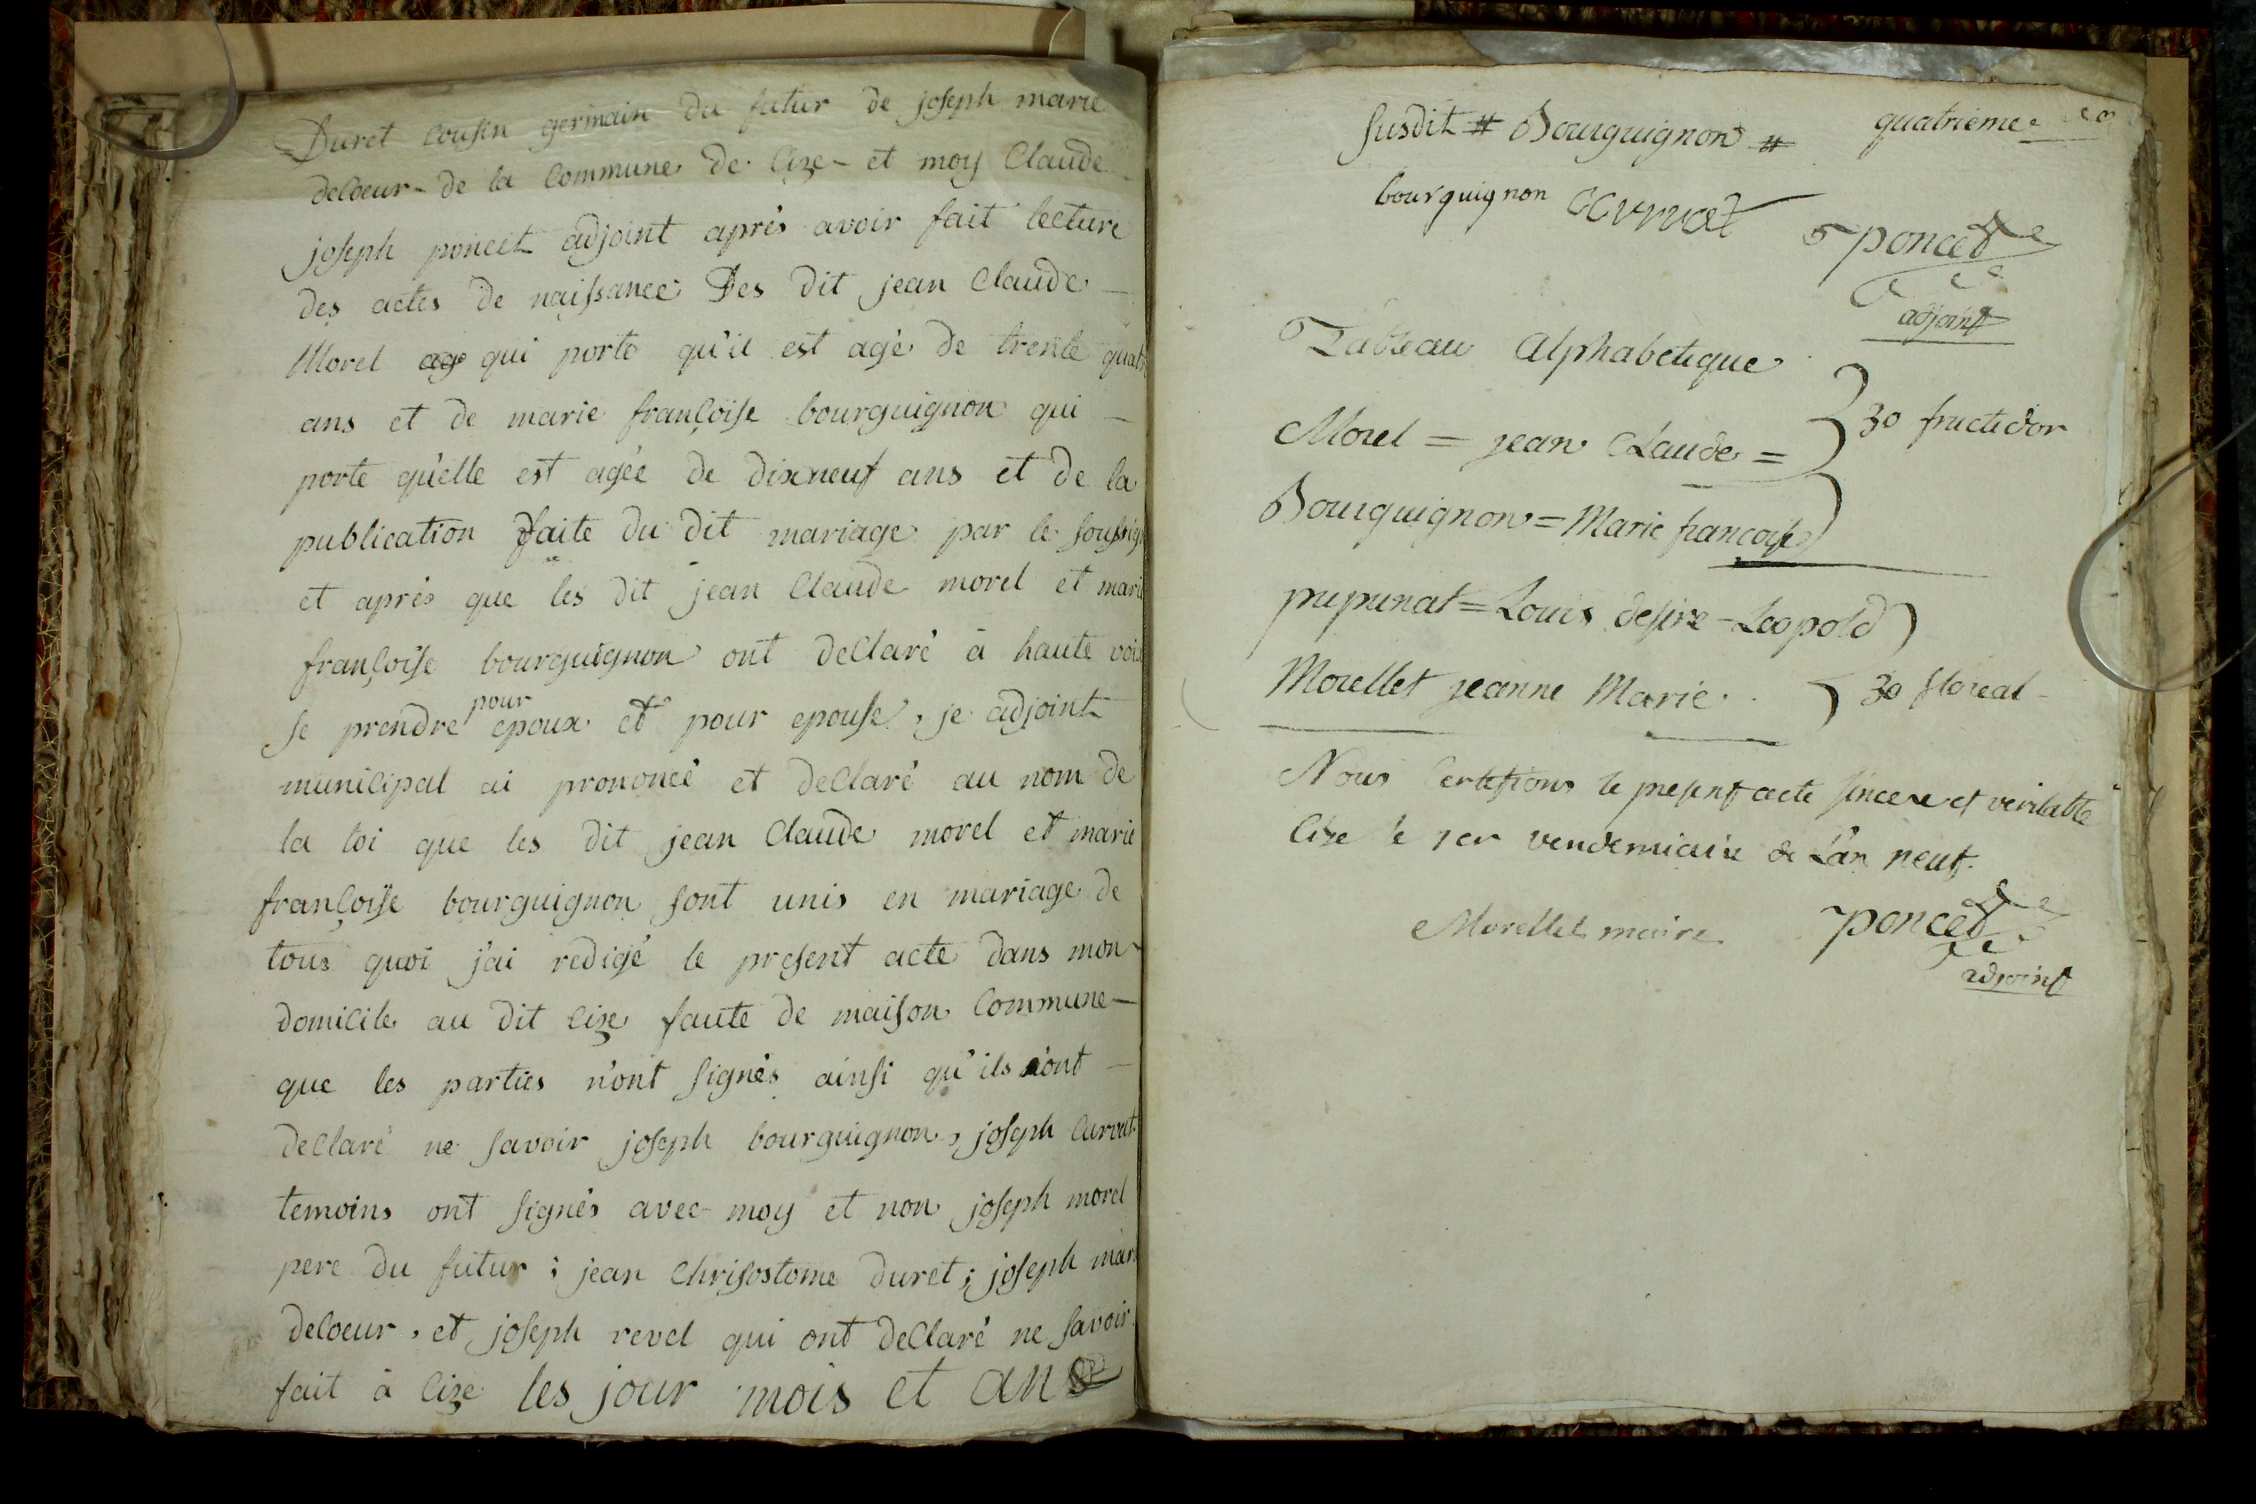 Duret cousin germain du futur de joseph marie
deloeur de la Commune de Cize et moy Claude
joseph poncet adjoint aprés avoir fait lecture
des actes de naissance Des dit jean Claude
Morel qui porte qu'il est agé de trente quatr
ans et de marie françoise bourguignon qui
porte qu'elle est agée de dixneuf ans et de la
publication faite du dit mariage par le soussig
et aprés que les dit jean Claude morel et mari
françoise bourguignon ont declaré à haute voi
se prendre pour epoux et pour epouse, je adjoint
municipal ai prononcé et declaré au nom de
la loi que les dit jean Claude morel et marie
françoise bourguignon sont unis en mariage de
tous quoi j'ai redigé le present acte dans mon
domicile au dit Cize faute de maison Commune
que les parties n'ont signés ainsi qu'ils n'ont
declaré ne savoir joseph bourguignon, joseph
temoins ont signés avec moy et non joseph morel
pere du futur ; jean Chrisostome duret ; joseph mar
deloeur, et joseph revel qui ont declaré ne savoir
fait à Cize les jour mois et an
susdit # Bourguignon # quatrieme
bourguignon
poncet
adjoint
Tableau Alphabetique
Morel = jean Claude = } 30 fructidor
Bourguignon = Marie francoise
= Louis desire - Leopold
Morellet jeanne Marie } 30 floreal
Nous Certifions le present acte sincere et veritable
Cize le 1er vendemiaire de L'an neuf.
Morellet maire poncet
adjoint